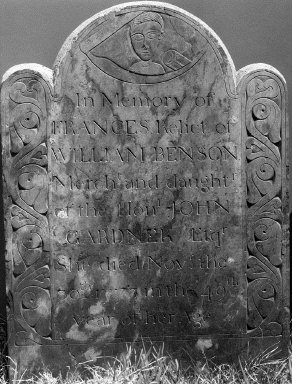 In Memory of
FRANCES Relict of
WILLIAM BENSON
Merchand daught.r
of the Hon.l JOHN
GARDNER Esq.r
She died Nov.r the
in the 49.th
year of her Age